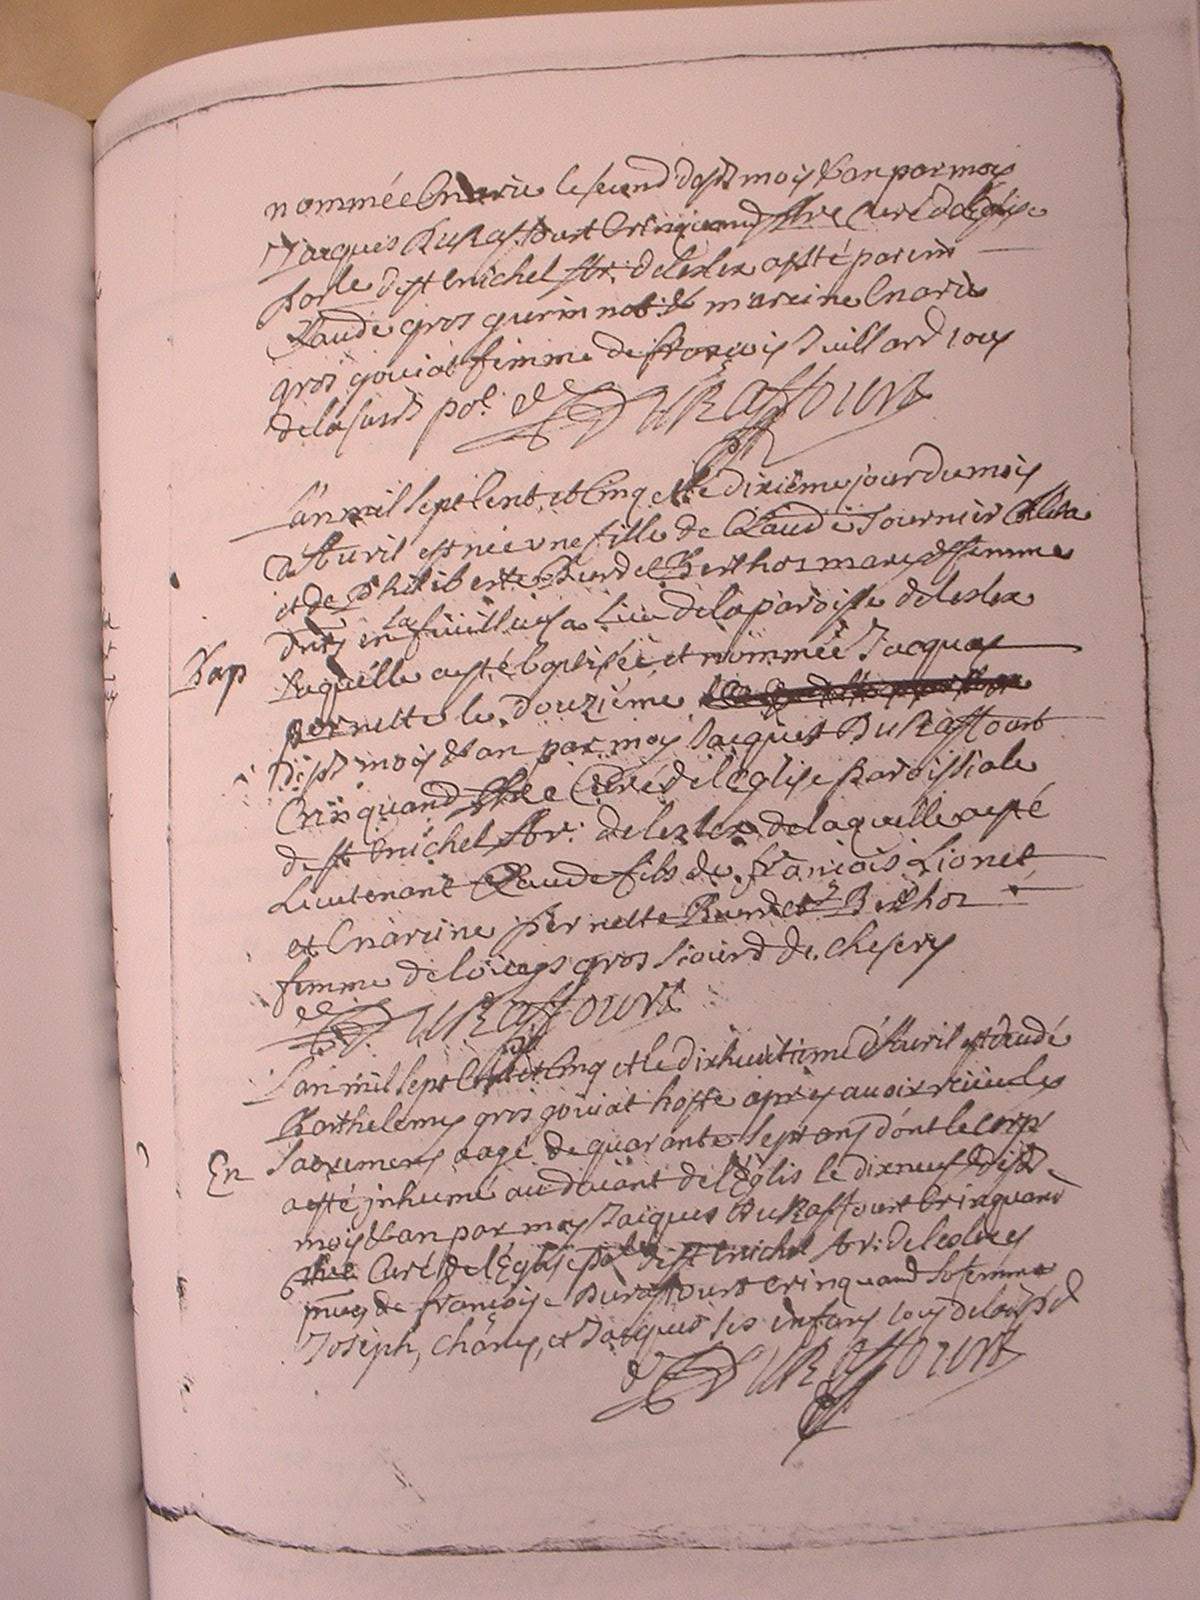 nommée Marie le second dust moy & an par moy
Jacques Duraffourt Crinquand Curé de léglise
de st Michel de lelex a esté parein
Claude gros gurin & mareine Marie
gros goviat femme de françois Juillard tous
de la pol. de DuRaffourt
L'an mil sept Cent et Cinq et le dixiéme jour du mois
d'Avril est née une fille de Claude Tournier
et de Philiberte Burdet Berthoz mary & femme
en la lieu de la paroisse de lelex
Bap laquelle a esté baptisée et nommée Jacque
pernette le douziéme
dist mois & an par moy Jacques DuRaffourt
Crinquand Curé de l'Eglise Paroissiale
de st Michel de lelex de laquelle a esté
Lieutenant Claude fils de françois Lionet
et Mareine pernette Burdet Berthoz
femme de gros de Chesery
de DuRaffourt
L'an mil sept Cent et Cinq et le dixhuitiéme d'Avril est decedé
Barthelemy gros goviat hoste apres avoir receu les
En Sacremens aagé de quarante sept ans dont le Corps
a esté jnhumé au devant de l'Eglise le dixneuf dist
mois & an par moy Jacques DuRaffourt Crinquand
Curé de l'Eglise pol. de st Michel de lelex
de françoise Duraffourt Crinquand sa femme
Joseph, et Jacques ses enfans tous de
de DuRaffourt